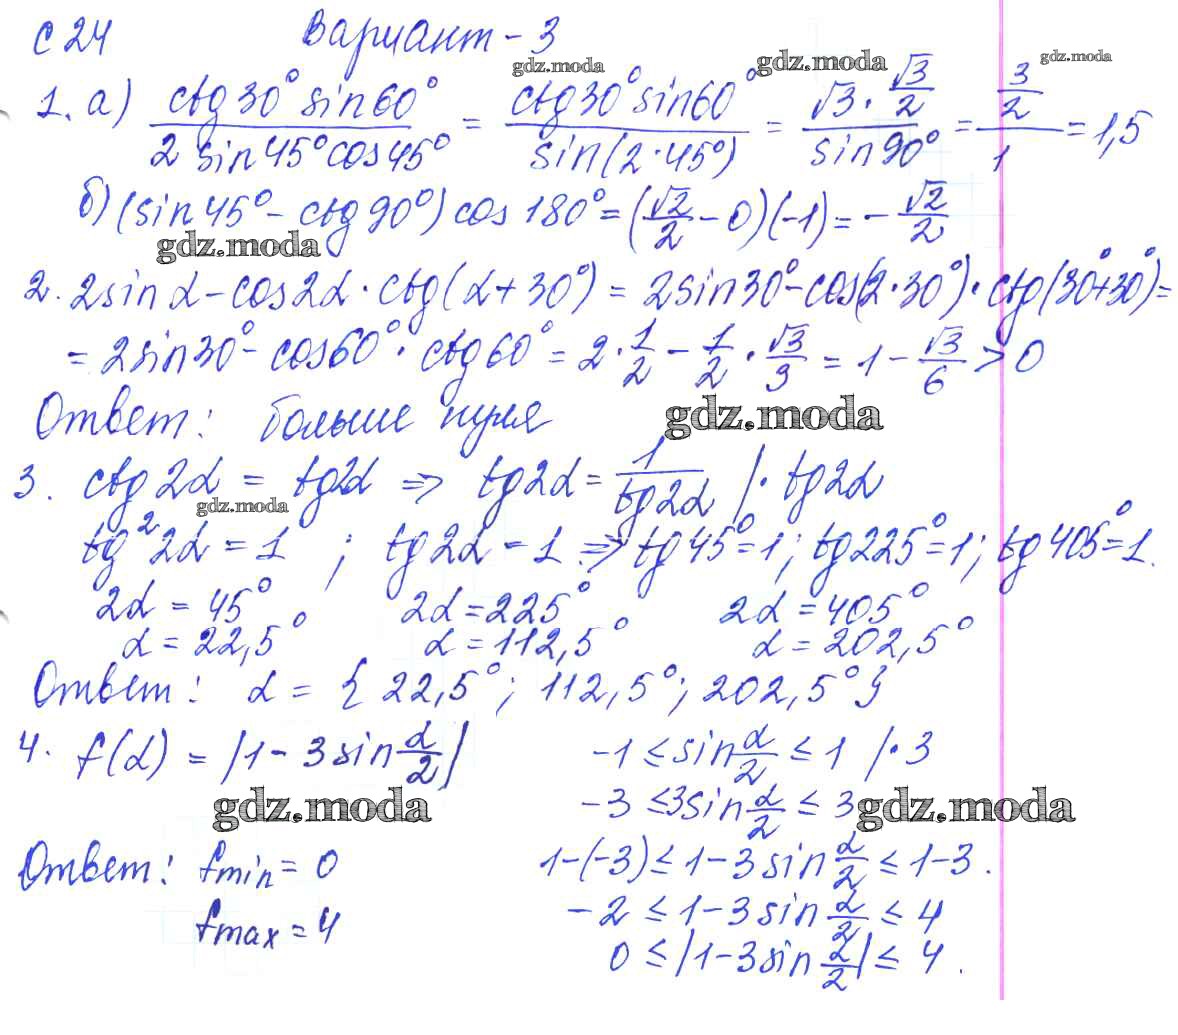 С 24 Вариант - 3
gdz.moda gdz.moda gdz.moda
1. а) (ctg 30° sin 60°) / (2 sin 45° cos 45°) = (ctg 30° sin 60°) / (sin (2·45°)) = (√3 · √3/2) / (sin 90°) = (3/2) / 1 = 1,5
б) (sin 45° - ctg 90°) cos 180° = (√2/2 - 0)(-1) = - √2/2
gdz.moda
2. 2 sin α - cos 2α · ctg (α + 30°) = 2 sin 30° - cos (2·30°) · ctg (30° + 30°) =
= 2 sin 30° - cos 60° · ctg 60° = 2 · 1/2 - 1/2 · √3/3 = 1 - √3/6 > 0
Ответ: больше нуля
gdz.moda
3. ctg 2α = tg 2α ⇒ tg 2α = 1/(tg 2α) | · tg 2α
gdz.moda
tg² 2α = 1 ; tg 2α - 1 ⇒ tg 45° = 1; tg 225° = 1; tg 405° = 1.
2α = 45° 2α = 225° 2α = 405°
α = 22,5° α = 112,5° α = 202,5°
Ответ: α = { 22,5°; 112,5°; 202,5° }
4. f(α) = |1 - 3 sin α/2| -1 ≤ sin α/2 ≤ 1 | · 3
gdz.moda -3 ≤ 3 sin α/2 ≤ 3 gdz.moda
Ответ: fmin = 0 1-(-3) ≤ 1 - 3 sin α/2 ≤ 1-3.
fmax = 4 -2 ≤ 1 - 3 sin α/2 ≤ 4
0 ≤ |1 - 3 sin α/2| ≤ 4.